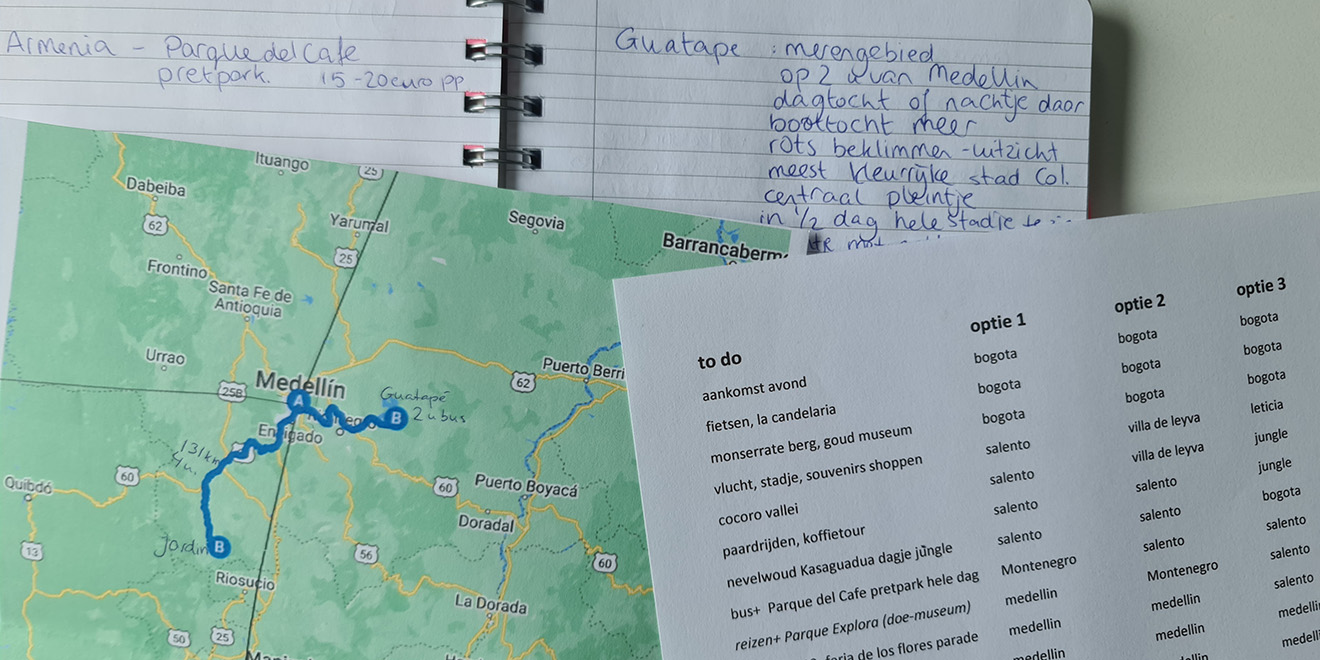 Armenia - Parque del Cafe
pretpark. 15-20 euro pp
Guatape : merengebied
op 2 u van Medellin
dagtocht of nachtje daar
boottocht meer
rots beklimmen - uitzicht
meest kleurrijke stad Col.
centraal pleintje
in 1/2 dag hele stadje
Ituango
25
Dabeiba
62
Yarumal
25
Segovia
Barrancaberm
Frontino
Santa Fe de
Antioquia
Urrao
25B
Medellín
A
Guatapé
2 u bus
B
62
Puerto Berrí
Envigado
131km
4u.
60
Quibdó
60
Puerto Boyacá
Doradal
13
Jardin
B
56
60
Riosucio
La Dorada
50
25
to do optie 1 optie 2 optie 3
aankomst avond bogota bogota bogota
fietsen, la candelaria bogota bogota bogota
monserrate berg, goud museum bogota bogota bogota
vlucht, stadje, souvenirs shoppen salento villa de leyva leticia
cocoro vallei salento villa de leyva jungle
paardrijden, koffietour salento salento jungle
nevelwoud Kasaguadua dagje jungle salento salento bogota
bus+ Parque del Cafe pretpark hele dag Montenegro salento salento
reizen+ Parque Explora (doe-museum) medellin Montenegro salento
feria de los flores parade medellin medellin salento
medellin medellin medelli
medell